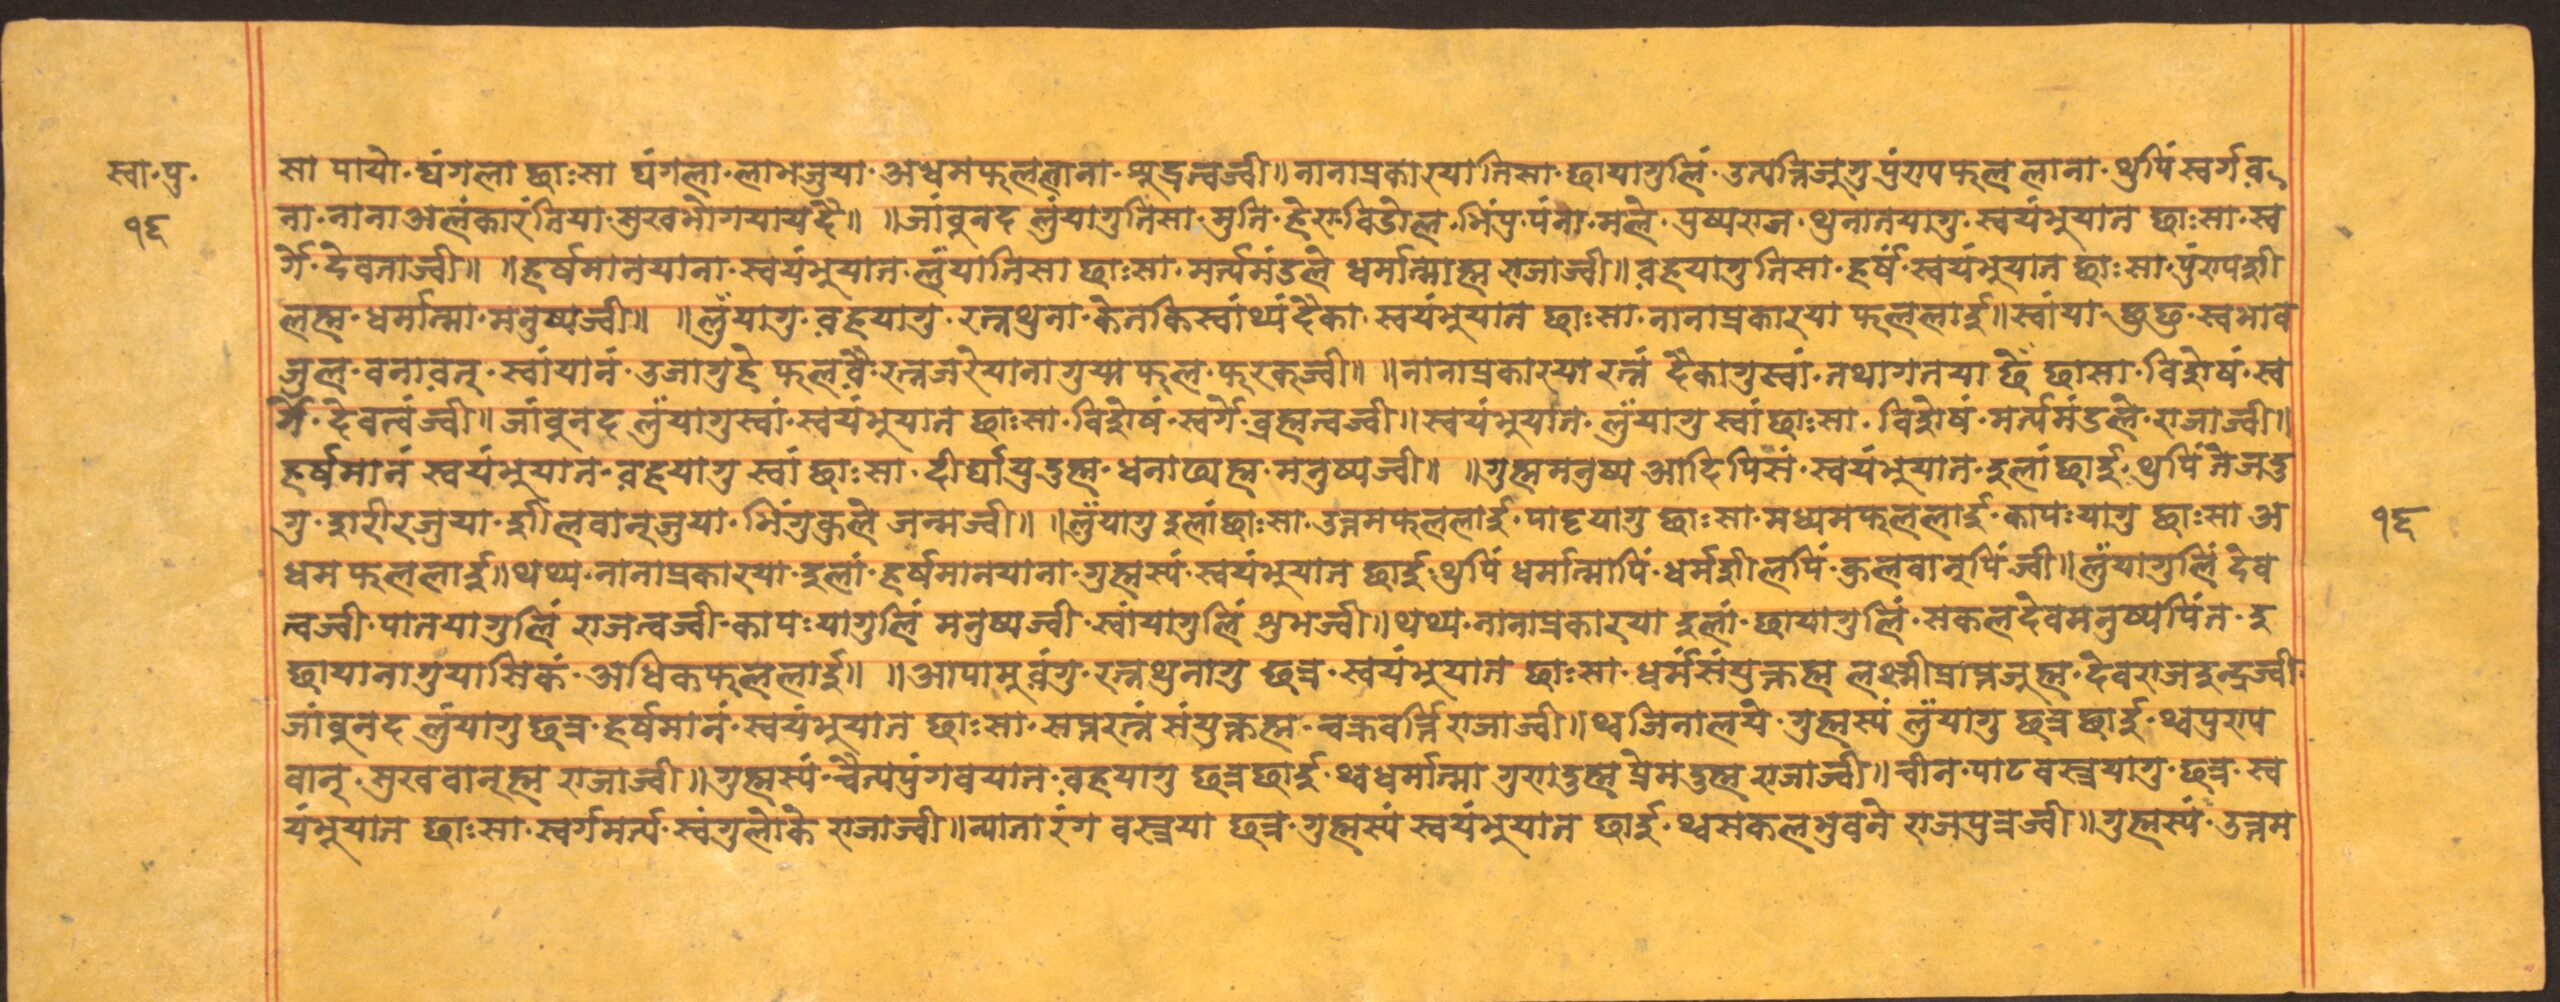 स्वा॰पु॰
१६
सा पायो॰ घंगला छाःसा घंगला॰लाभजुया॰अधमफलललाना॰शूद्रत्वज्वी॥नानाप्रकारयातिसा॰छायागुलिं॰उत्पत्तिजुगु पुंरापफल लाना॰थुपिं स्वर्गव
ना॰नानाअलंकारंतिया॰सुखभोगयायदै॥ ॥जांबुनद लुंयागुतिसा॰मुति॰हेरा॰विडोल॰भिंपु॰पंना॰मले॰पुष्पराज॰थुनातयागु॰स्वयंभुयात छाःसा॰स्व
र्गे॰देवताज्वी॥ ॥हर्षमानयाना॰स्वयंभुयात॰लुंयातिसा छाःसा॰मर्त्यमंडले धर्मात्माह्म राजाज्वी॥वहयागु तिसा॰हर्षं॰स्वयंभुयात छाःसा॰पुंरापशी
लह्म॰धर्मात्मा॰मनुष्यज्वी॥ ॥लुंयागु॰वहयागु॰रत्नथुना॰केतकिस्वांथ्यं दैका॰स्वयंभुयात छाःसा॰नानाप्रकारया फलललाई॥स्वांया॰छुछु॰स्वभाव
जुल॰वनावत्॰स्वांयानं॰उजागुहे फलवै॰रत्नजरेयानागुया फल॰फरकज्वी॥ ॥नानाप्रकारया रत्नं दैकागुस्वां॰तथागतया छें छासा॰विशेषं॰स्व
र्गे॰देवत्वंज्वी॥जांबुनद लुंयागुस्वां॰स्वयंभुयात छाःसा॰विशेषं॰स्वर्गे॰ब्रह्मत्वज्वी॥स्वयंभुयात॰लुंयागु स्वां छाःसा॰विशेषं॰मर्त्यमंडले॰राजाज्वी॥
हर्षमानं स्वयंभुयात॰वहयागु स्वां छाःसा॰दीर्घायुदुह्म॰धनाढ्यह्म॰मनुष्यज्वी॥ ॥गुह्ममनुष्य आदिपिसं॰स्वयंभुयात॰दुलां छाई॰थुपिं तेजदु
गु॰शरीरजुया॰शीलवान्जुया॰भिंगुकुले जन्मज्वी॥ ॥लुंयागु दुलां छाःसा॰उत्तमफलललाई॰पाट्टयागु छाःसा॰मध्यमफलललाई॰कापःयागु छाःसा अ
धमफलललाई॥थथ्य॰नानाप्रकारया॰दुलां॰हर्षमानयाना॰गुह्मस्यं॰स्वयंभुयात छाई॰थुपिं धर्मात्मापिं॰धर्मशीलपिं॰कुलवान्पिं ज्वी॥लुंयागुलिं देव
त्वज्वी॰पातयागुलिं राजत्वज्वी॰कापःयागुलिं मनुष्यज्वी॰स्वांयागुलिं शुभज्वी॥थथ्य॰नानाप्रकारया दुलां॰छायागुलिं॰सकलदेवमनुष्यपिंत॰दु
छायानागुयासिकं॰अधिकफलललाई॥ ॥आपामुवंगु॰रत्नथुनागु छत्र॰स्वयंभुयात छाःसा॰धर्मसंयुक्तह्म लक्ष्मीप्राप्तजुह्म॰देवराजइन्द्रज्वी॰
जांबुनद लुंयागुछत्र॰हर्षमानं॰स्वयंभुयात छाःसा॰सप्तरत्नं संयुक्तह्म॰चक्रवर्त्तिराजाज्वी॥थ्वजिनालये॰गुह्मस्यं लुंयागु छत्र छाई॰थ्वपुराप
वान्॰सुखवान्ह्म राजाज्वी॥गुह्मस्यं॰चैत्यपुंगवयात॰वहयागु छत्रछाई॰थ्वधर्मात्मा गुरादुह्म प्रेमदुह्म राजाज्वी॥चीन॰पाटवस्त्रयागु॰छत्र॰स्व
यंभुयात छाःसा॰स्वर्गमर्त्य॰स्वंगुलोके राजाज्वी॥न्यातारंग वस्त्रया छत्र॰गुह्मस्यं स्वयंभुयात छाई॰थ्वसकलभुवने राजपुत्रज्वी॥गुह्मस्यं॰उत्तम
१६